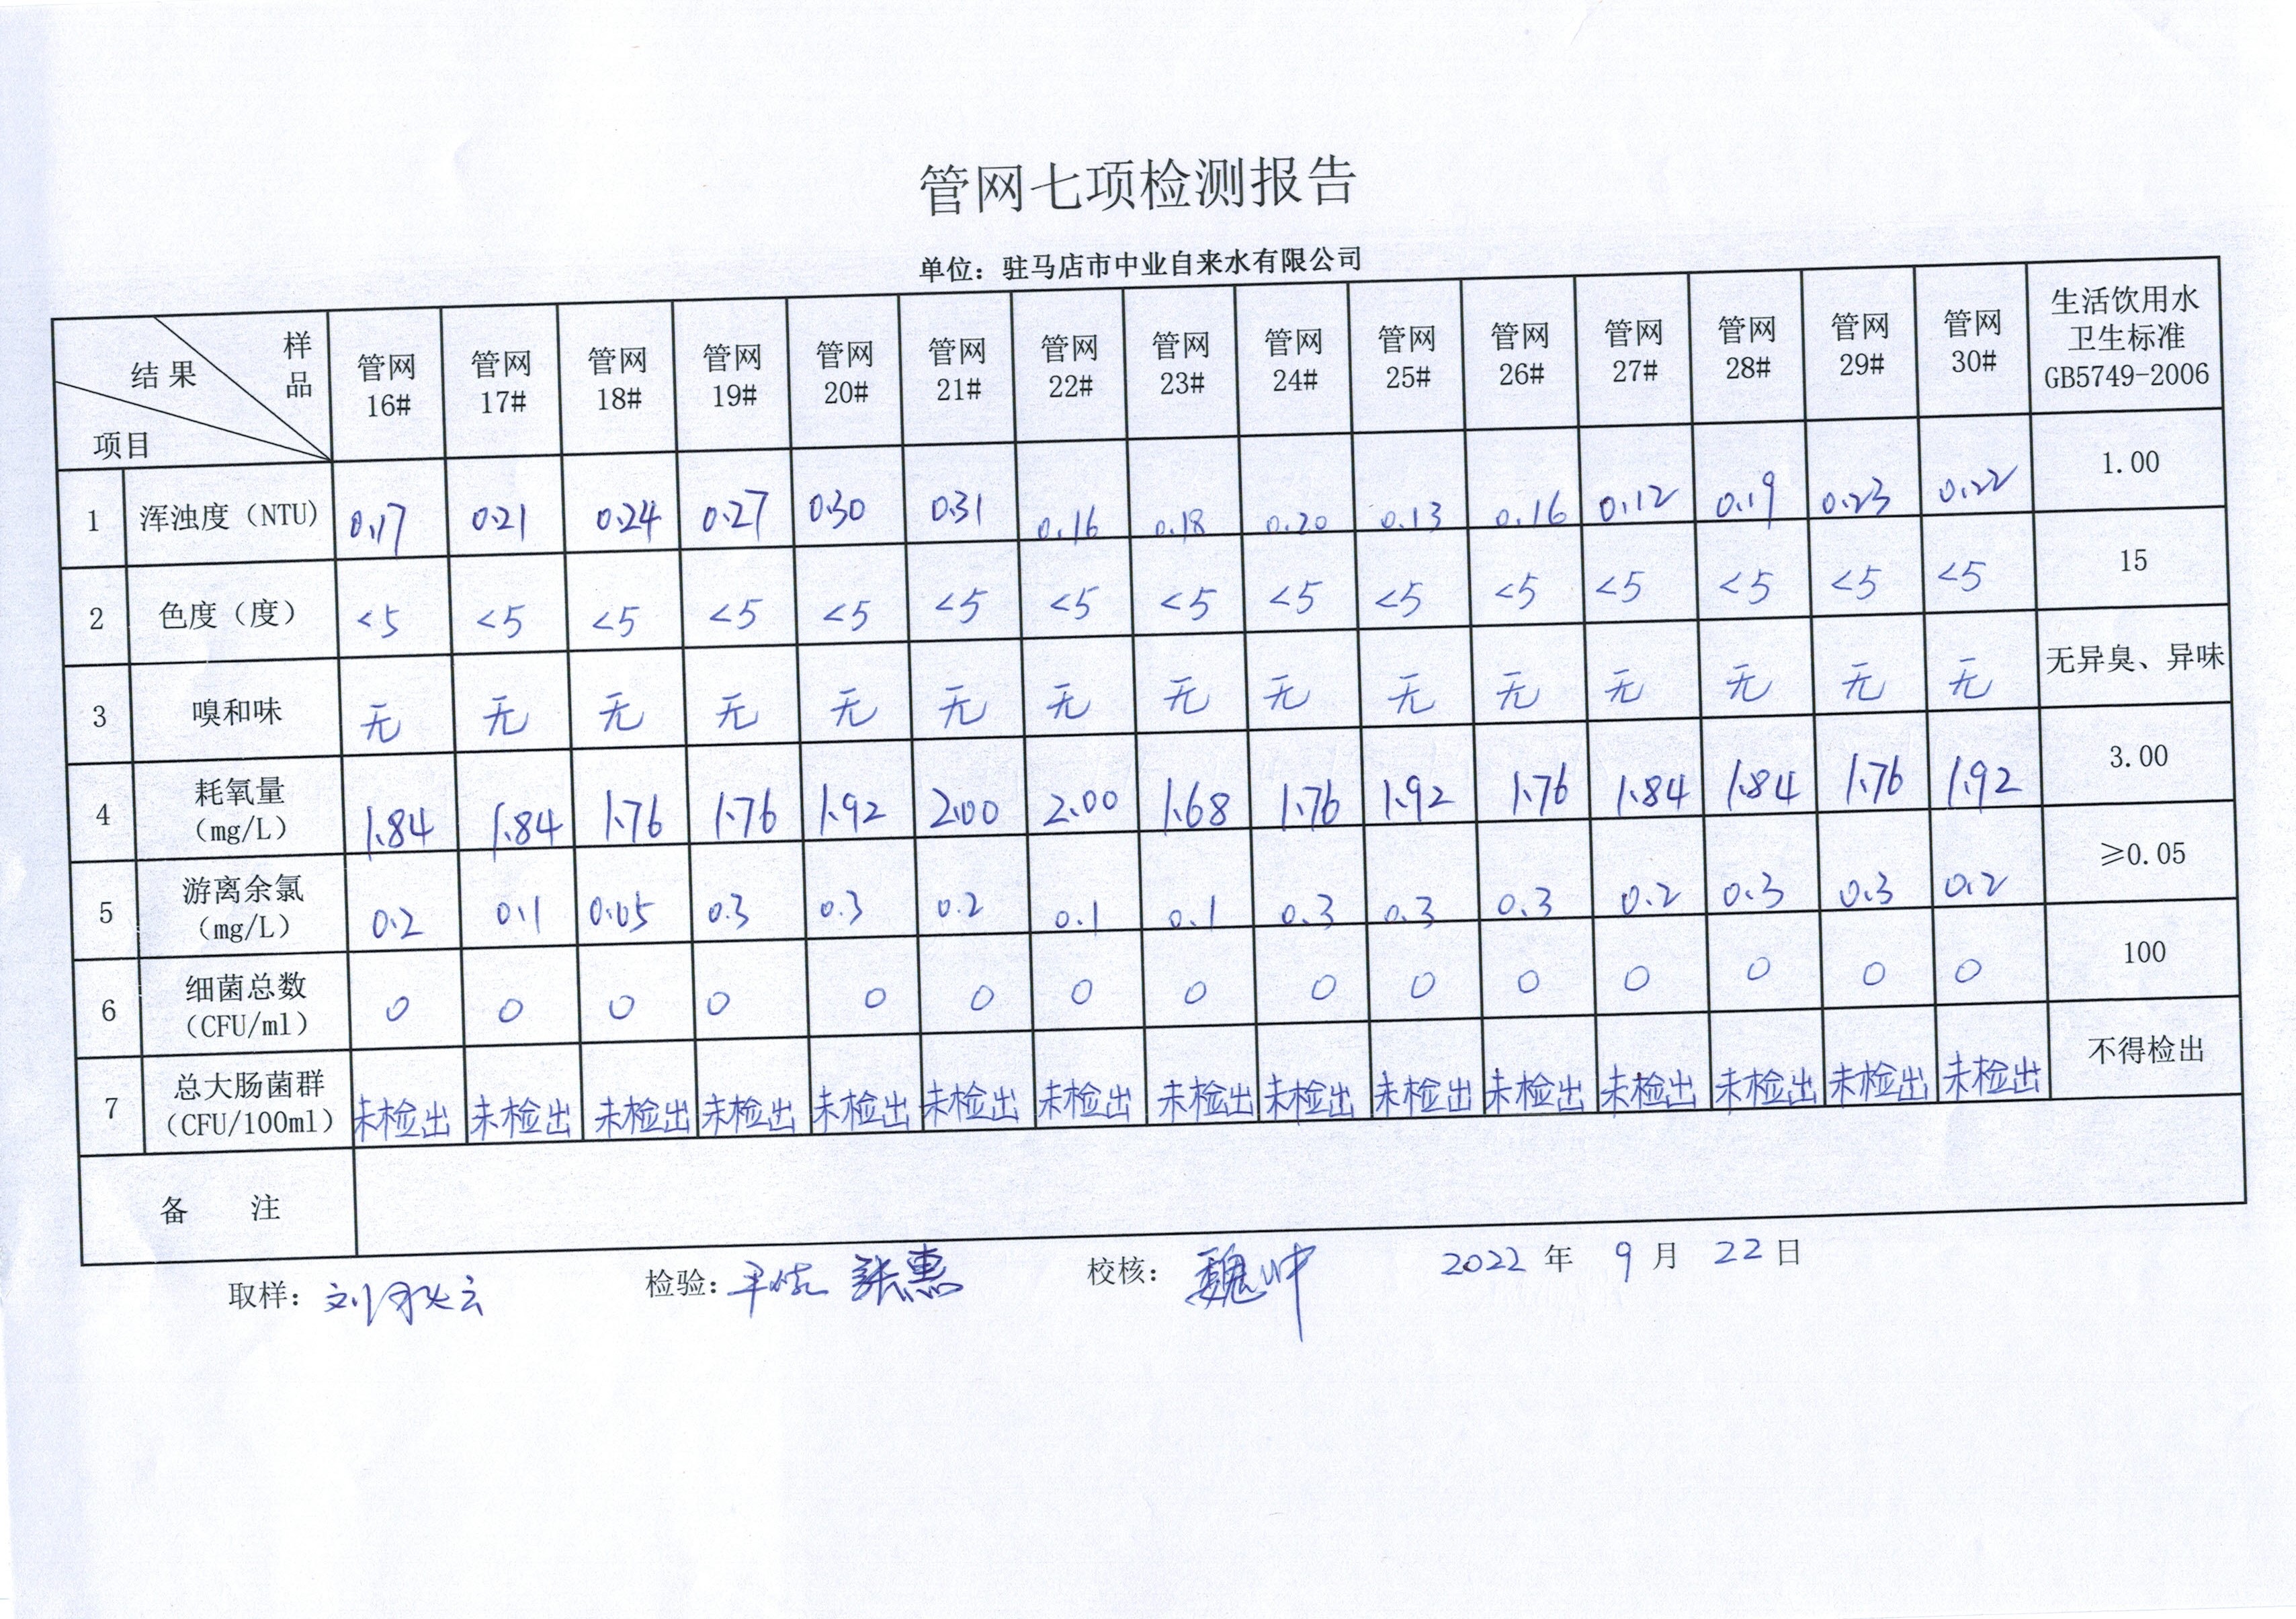 管网七项检测报告
单位：驻马店市中业自来水有限公司
样品 结果 项目 管网16# 管网17# 管网18# 管网19# 管网20# 管网21# 管网22# 管网23# 管网24# 管网25# 管网26# 管网27# 管网28# 管网29# 管网30# 生活饮用水卫生标准GB5749-2006
1 浑浊度（NTU） 0.17 0.21 0.24 0.27 0.30 0.31 0.16 0.18 0.20 0.13 0.16 0.12 0.19 0.23 0.22 1.00
2 色度（度） <5 <5 <5 <5 <5 <5 <5 <5 <5 <5 <5 <5 <5 <5 <5 15
3 嗅和味 无 无 无 无 无 无 无 无 无 无 无 无 无 无 无 无异臭、异味
4 耗氧量（mg/L） 1.84 1.84 1.76 1.76 1.92 2.00 2.00 1.68 1.76 1.92 1.76 1.84 1.84 1.76 1.92 3.00
5 游离余氯（mg/L） 0.2 0.1 0.05 0.3 0.3 0.2 0.1 0.1 0.3 0.3 0.3 0.2 0.3 0.3 0.2 ≥0.05
6 细菌总数（CFU/ml） 0 0 0 0 0 0 0 0 0 0 0 0 0 0 0 100
7 总大肠菌群（CFU/100ml） 未检出 未检出 未检出 未检出 未检出 未检出 未检出 未检出 未检出 未检出 未检出 未检出 未检出 未检出 未检出 不得检出
备 注
取样： 检验： 张惠 校核： 魏 2022 年 9 月 22 日